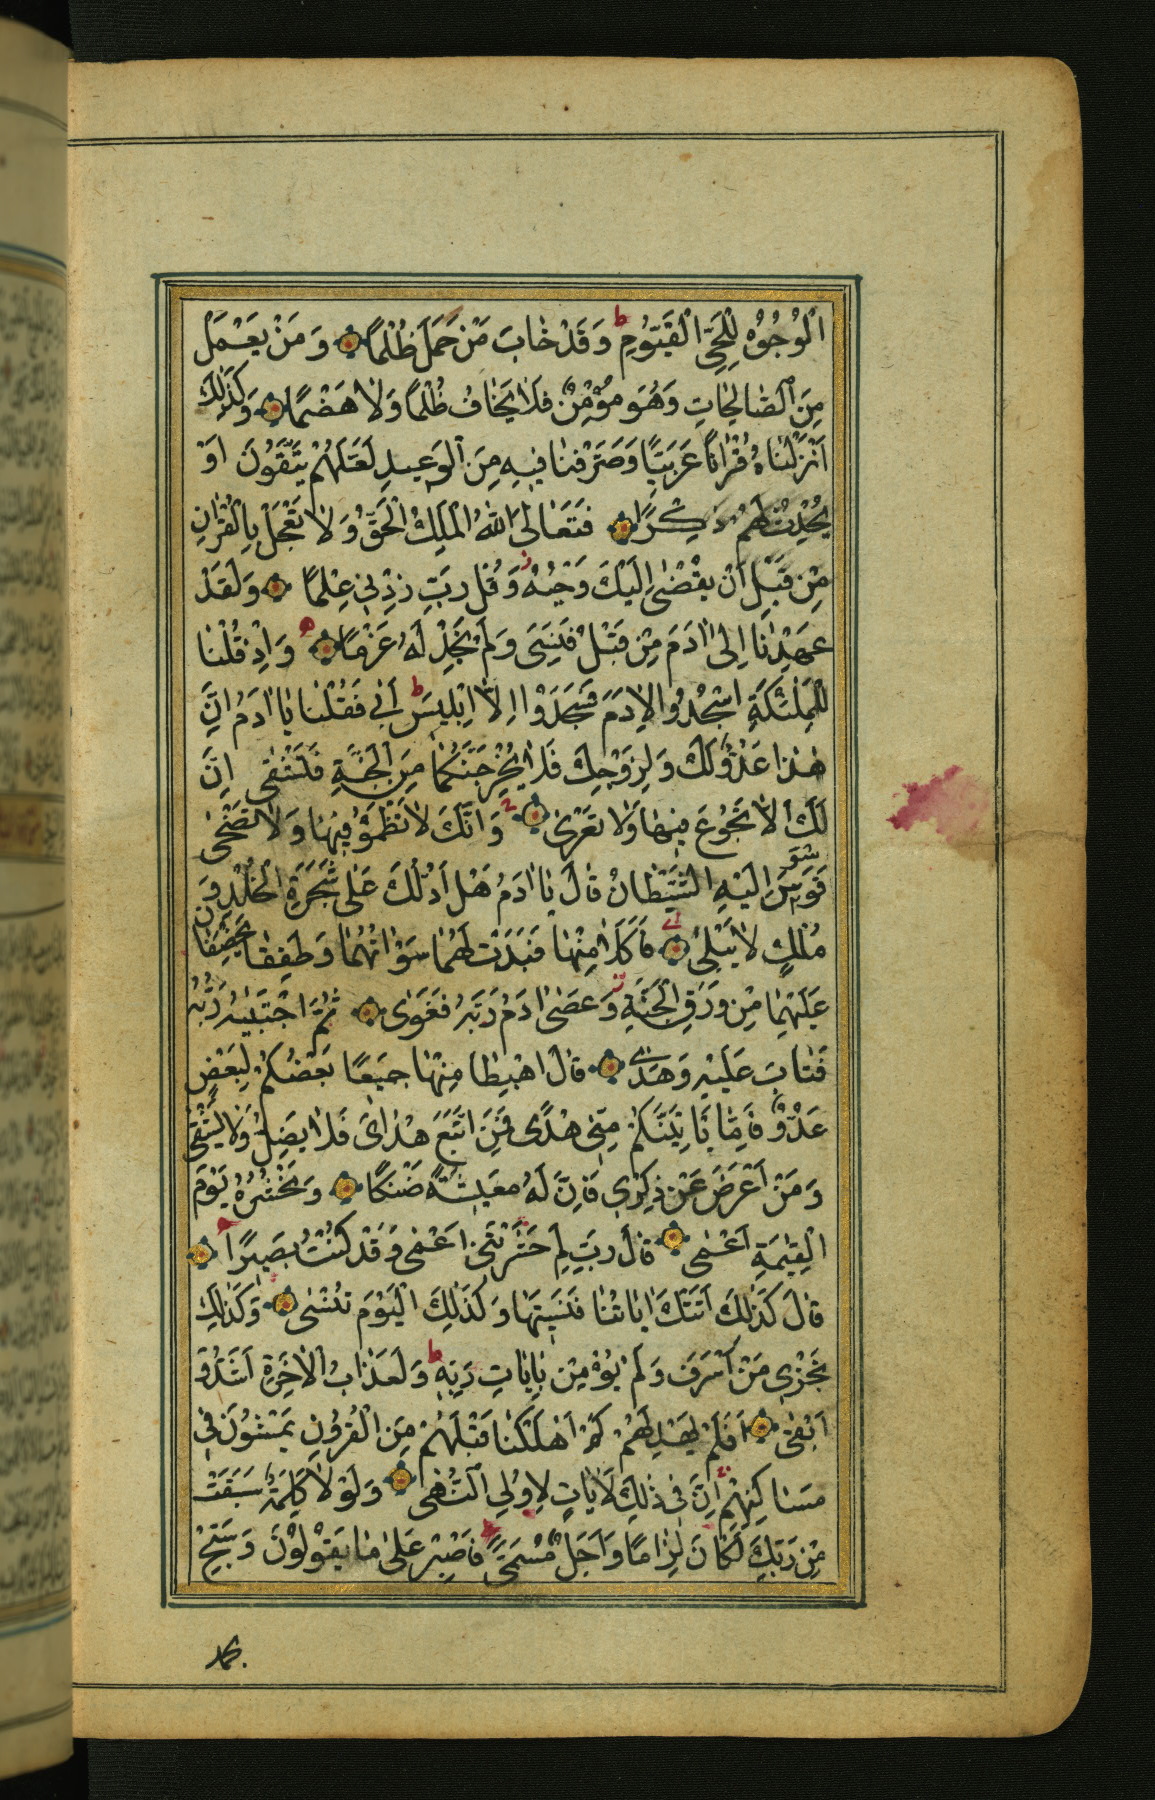 الْوُجُوهُ لِلْحَيِّ الْقَيُّومِ ط وَقَدْ خَابَ مَنْ حَمَلَ ظُلْمًا وَمَنْ يَعْمَلْ
مِنَ الصَّالِحَاتِ وَهُوَ مُؤْمِنٌ فَلَا يَخَافُ ظُلْمًا وَلَا هَضْمًا وَكَذَلِكَ
أَنْزَلْنَاهُ قُرْآنًا عَرَبِيًّا وَصَرَّفْنَا فِيهِ مِنَ الْوَعِيدِ لَعَلَّهُمْ يَتَّقُونَ أَوْ
يُحْدِثُ لَهُمْ ذِكْرًا فَتَعَالَى اللَّهُ الْمَلِكُ الْحَقُّ وَلَا تَعْجَلْ بِالْقُرْآنِ
مِنْ قَبْلِ أَنْ يُقْضَى إِلَيْكَ وَحْيُهُ وَقُلْ رَبِّ زِدْنِي عِلْمًا وَلَقَدْ
عَهِدْنَا إِلَى آدَمَ مِنْ قَبْلُ فَنَسِيَ وَلَمْ نَجِدْ لَهُ عَزْمًا وَإِذْ قُلْنَا
لِلْمَلٰئِكَةِ اسْجُدُوا لِآدَمَ فَسَجَدُوا إِلَّا إِبْلِيسَ ط أَبَى فَقُلْنَا يَا آدَمُ إِنَّ
هٰذَا عَدُوٌّ لَكَ وَلِزَوْجِكَ فَلَا يُخْرِجَنَّكُمَا مِنَ الْجَنَّةِ فَتَشْقَى إِنَّ
لَكَ أَلَّا تَجُوعَ فِيهَا وَلَا تَعْرَى وَأَنَّكَ لَا تَظْمَؤُ فِيهَا وَلَا تَضْحَى
فَوَسْوَسَ إِلَيْهِ الشَّيْطَانُ قَالَ يَا آدَمُ هَلْ أَدُلُّكَ عَلَى شَجَرَةِ الْخُلْدِ وَ
مُلْكٍ لَا يَبْلَى فَأَكَلَا مِنْهَا فَبَدَتْ لَهُمَا سَوْآتُهُمَا وَطَفِقَا يَخْصِفَانِ
عَلَيْهِمَا مِنْ وَرَقِ الْجَنَّةِ وَعَصَى آدَمُ رَبَّهُ فَغَوَى ثُمَّ اجْتَبٰيهُ رَبُّهُ
فَتَابَ عَلَيْهِ وَهَدَى قَالَ اهْبِطَا مِنْهَا جَمِيعًا بَعْضُكُمْ لِبَعْضٍ
عَدُوٌّ فَإِمَّا يَأْتِيَنَّكُمْ مِنِّي هُدًى فَمَنِ اتَّبَعَ هُدَايَ فَلَا يَضِلُّ وَلَا يَشْقَى
وَمَنْ أَعْرَضَ عَنْ ذِكْرِي فَإِنَّ لَهُ مَعِيشَةً ضَنْكًا وَنَحْشُرُهُ يَوْمَ
الْقِيٰمَةِ أَعْمَى قَالَ رَبِّ لِمَ حَشَرْتَنِي أَعْمَى وَقَدْ كُنْتُ بَصِيرًا
قَالَ كَذٰلِكَ أَتَتْكَ آيَاتُنَا فَنَسِيتَهَا وَكَذٰلِكَ الْيَوْمَ تُنْسَى وَكَذٰلِكَ
نَجْزِي مَنْ أَسْرَفَ وَلَمْ يُؤْمِنْ بِآيَاتِ رَبِّهِ ط وَلَعَذَابُ الْآخِرَةِ أَشَدُّ وَ
أَبْقَى أَفَلَمْ يَهْدِ لَهُمْ كَمْ أَهْلَكْنَا قَبْلَهُمْ مِنَ الْقُرُونِ يَمْشُونَ فِي
مَسَاكِنِهِمْ إِنَّ فِي ذٰلِكَ لَآيَاتٍ لِأُولِي النُّهَى وَلَوْلَا كَلِمَةٌ سَبَقَتْ
مِنْ رَبِّكَ لَكَانَ لِزَامًا وَأَجَلٌ مُسَمًّى فَاصْبِرْ عَلَى مَا يَقُولُونَ وَسَبِّحْ